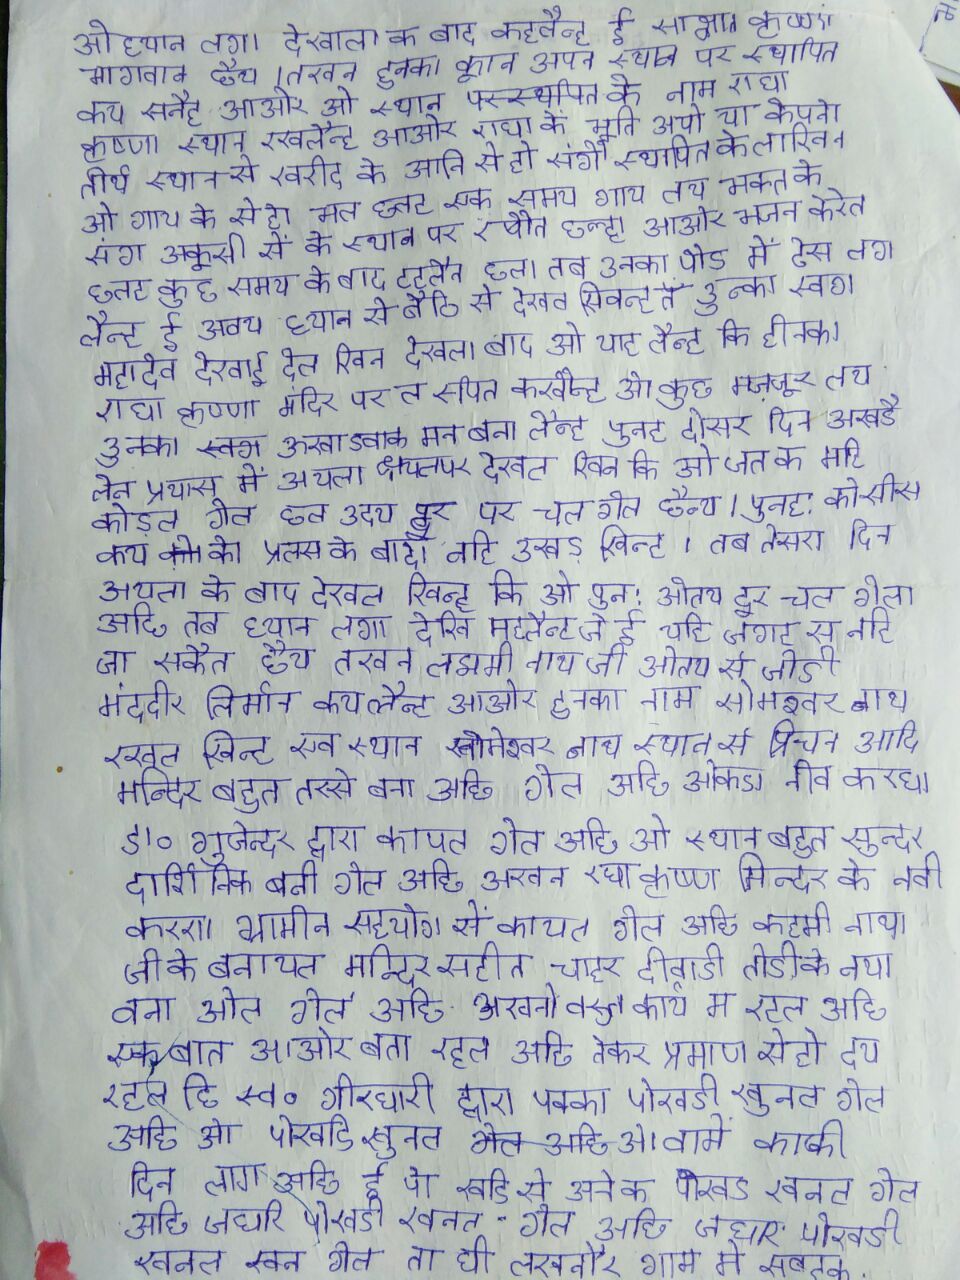 ओ ध्यान लगा देखाला क बाद कहलैन्ह ई साक्षात कृष्णा
भागवान छैथ । तखन हुनका कान अपन स्थान पर स्थापित
कय सनैह आओर ओ स्थान पर स्थापित के नाम राधा
कृष्णा स्थान रखलैन्ह आओर राधा के मूर्ति अयो या केपतो
तीर्थ स्थान से खरीद के आनि सेहो संगे स्थापित केलाखिन
ओ गाय के सेहो भत छलह एक समय गाय लय भकत के
संग अकुसी सें के स्थान पर रूपौत छन्हा आओर भजन केरेत
छलह कुछ समय के बाद टहलैत छला तब उनका पोड में ठेस लग
लैन्ह ई अवय ध्यान से बैठि से देखव खिन्ह तँ उन्का स्वग
महादेव देखाई देल खिन देखला बाद ओ याह लैन्ह कि हीनका
राधा कृष्णा मंदिर पर त सपित करबैन्ह ओ कुछ मजजूर लय
उनका स्वग उखाडवाक मन बना लैन्ह पुनह दोसर दिन अखडै
लेन प्रयास में अयला क्षयलपर देखल खिन कि ओ जतक माटि
कोड़ल गेल छल उदय दुर पर चल गेल छैन्य । पुनह: कोसीस
कय का प्रलस के बादो नहि उखड़ खिन्ह । तब तेसरा दिन
अयला के बाद देखल खिन्ह कि ओ पुन: ओतय दुर चल गेला
अछि तब ध्यान लगा देखि महलैन्ह जे ई यहि जगह स नहि
जा सकैत छैय तखन लक्षमी नाथ जी ओतय सं जोडी
मंददीर निर्मान कयलैन्ह आओर हुनका नाम सोमश्वर नाथ
रखल खिन्ह एव स्थान सोमेश्वर नाथ स्थान सं प्रिचन आदि
मन्दिर बहुत तरसे बना अछि गेल अछि ओकडा नीव करधा
डा० गुजेन्दर द्वारा कायल गेल अछि ओ स्थान बहुत सुन्दर
दार्शिनिक बनी गेल अछि अखन रधा कृष्ण मिन्दर के नवी
करसा ग्रामीन सहयोग सें कायल गेल अछि कहमी नाथा
जी के बनायल मन्दिर सहीत चाहर दीवाडी तोडी के नया
बना ओल गेल अछि अखनो कार्य म रहल अछि
एक बात आओर बता रहल अछि तेकर प्रमाण सेहो दय
रहल हि स्व० गीरधारी द्वारा पक्का पोखडी खुनल गेल
अछि ओ पोखडि खुनल गेल अछि ओ वामें काकी
दिन लाग अछि ई पो खडि से अनेक पोखड खनल गेल
अछि जधारि पोखडी खनल - गेल अछि जधार पोखडी
खनल खन गेल ता धी लखनौर गाम में सबतक.